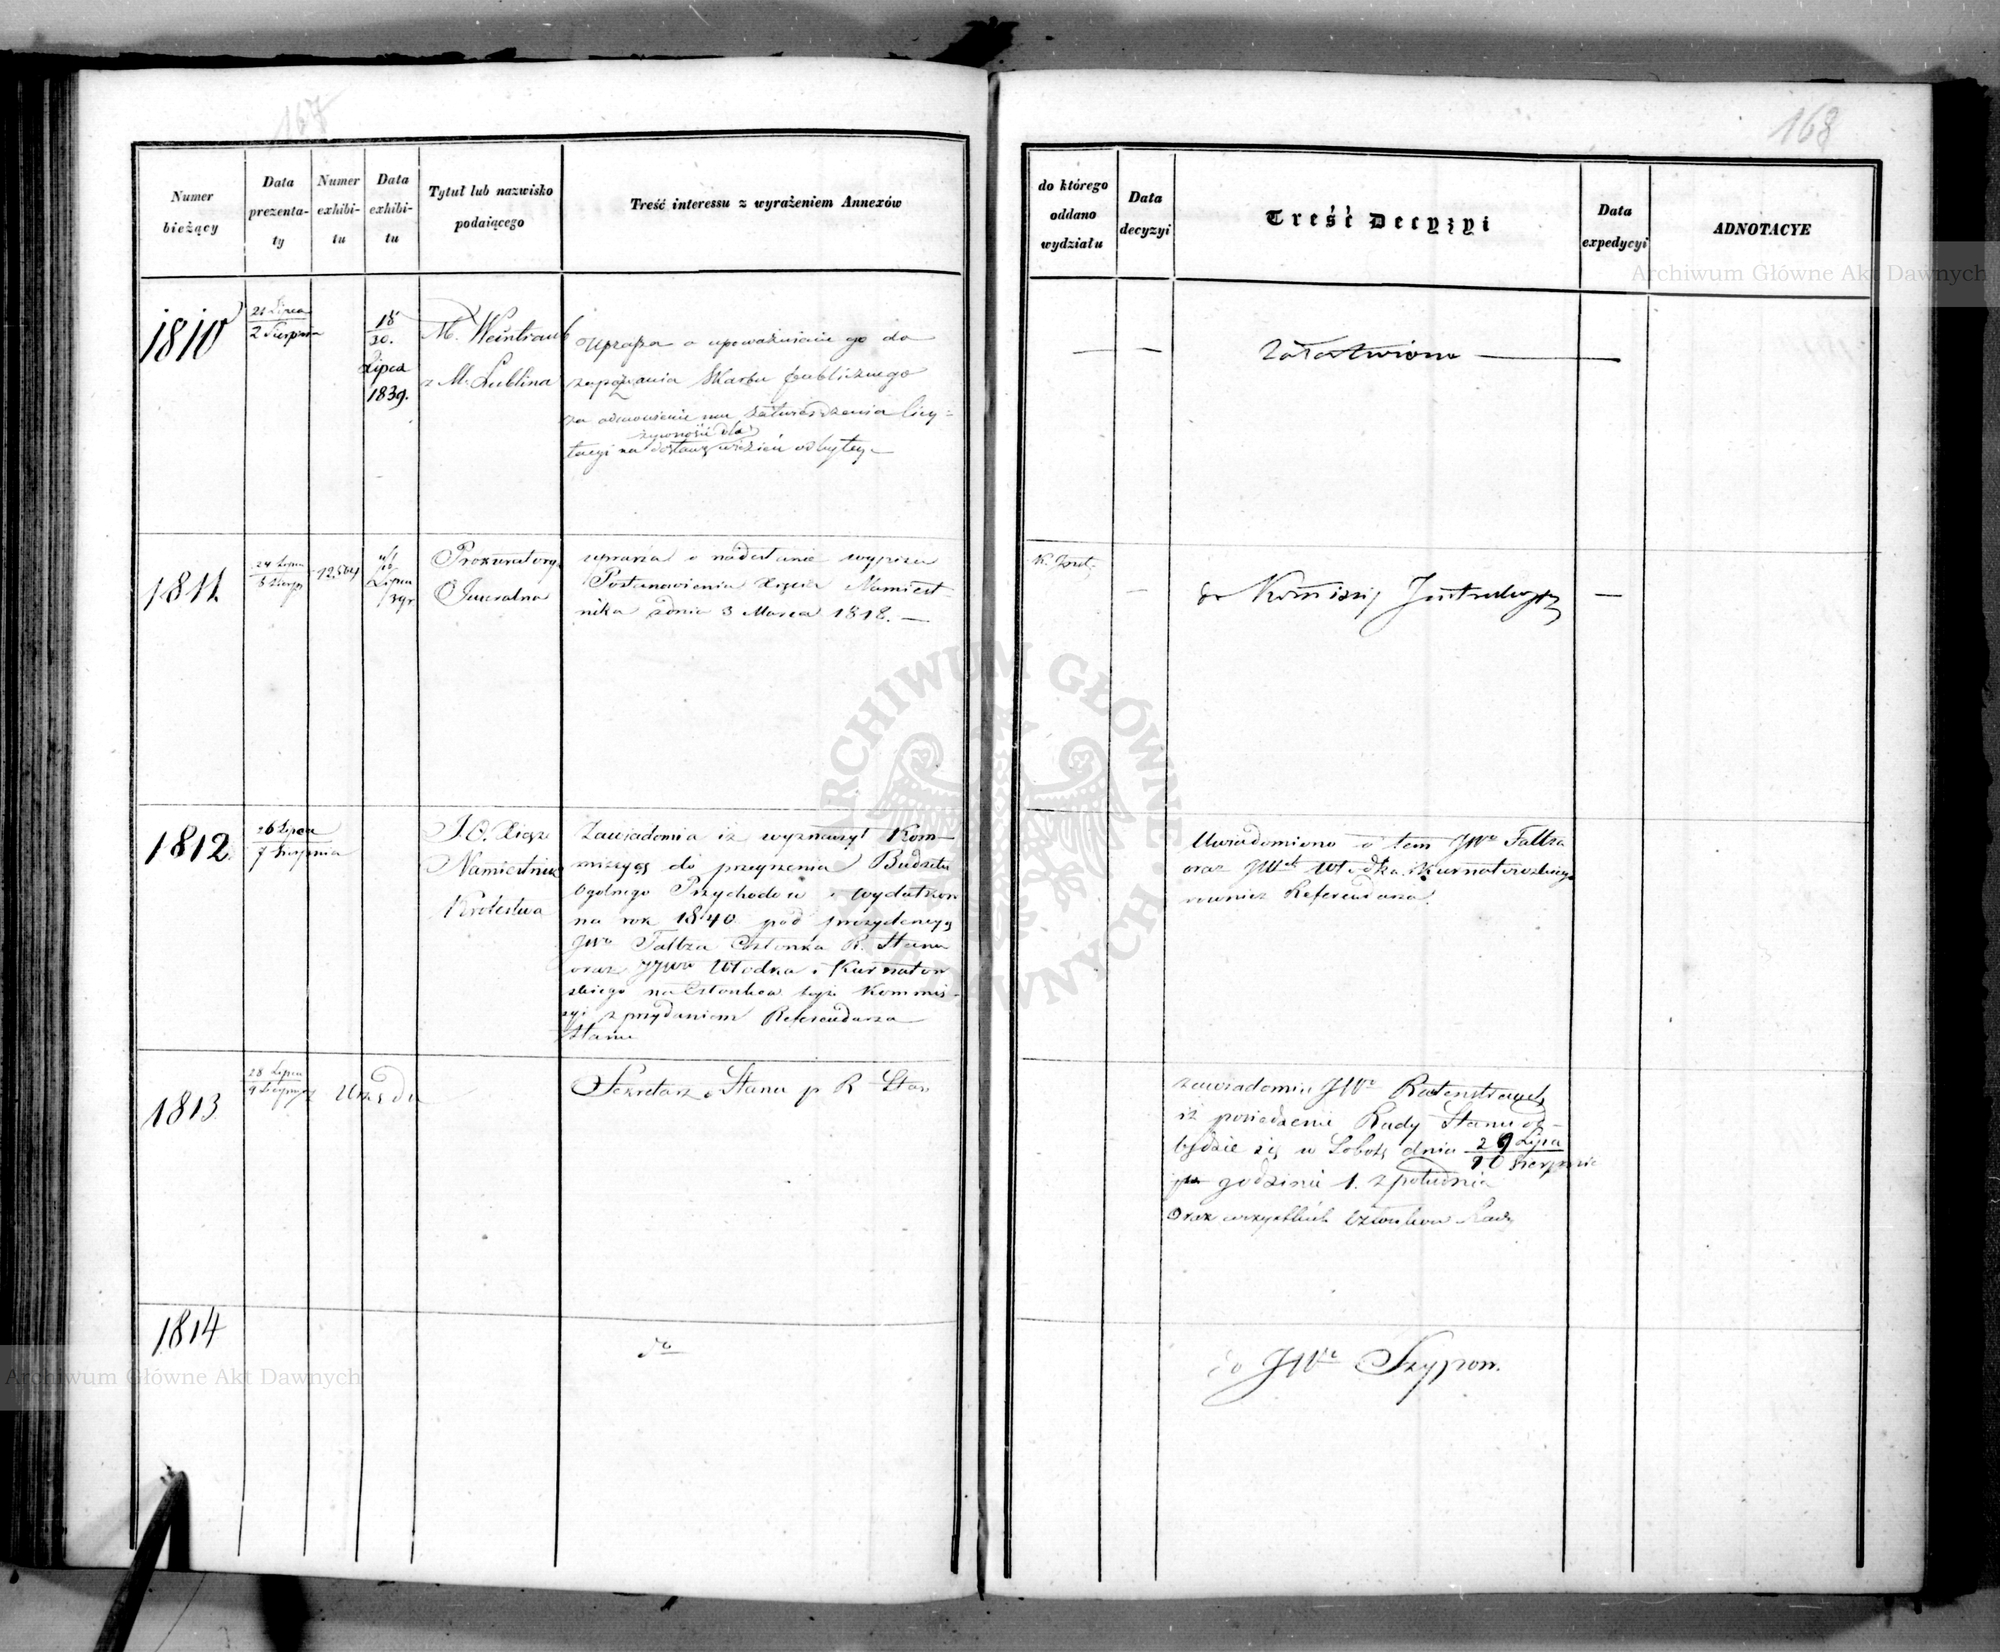 167
Numer
bieżący
Data
prezenta-
ty
Numer
exhibi-
tu
Data
exhibi-
tu
Tytuł lub nazwisko
podaiącego
Treść interessu z wyrażeniem Annexów
1810
21 Lipca
2 Sierpnia
18
30.
Lipca
1839.
M. Weintraub
z M. Lublina
Uprasza o upoważnienie go do
zapozwania Skarbu publicznego
za odmowienie mu zatwierdzenia licy=
żywności dla
tacyi na dostawę więzień odbytey
1811
24 Lipca
5 Sierp
12504
Lipca
Prokuratorya
Jeneralna
uprasza o nadesłanie wypisu
Postanowienia Xięcia Namiest-
nika z dnia 3 Marca 1818. —
1812
26 Lipca
7 Sierpnia
J. O. Xiąże
Namiestnik
Królestwa
Zawiadomia iż wyznaczył Kom-
missyą do przeyrzenia Budżetu
Ogolnego Przychodów i wydatków
na rok 1840 pod prezydencyą
JWo Faltza Członka R. Stanu
oraz JJWW Włodka i Kurnatow
skiego na Członków teyże Kommis-
syi z przydaniem Referendarza
Stanu
1813
28 Lipca
9 Sierpnia
z Urzędu
Sekretarz Stanu p R Stan
1814
do
168
do którego
oddano
wydziału
Data
decyzyi
Treść Decyzyi
Data
expedycyi
ADNOTACYE
Załatwiono
K. Instr.
do Komissyi Instrukcyi
Uwiadomiono o tem JWo Faltza
oraz Włodka i Kurnatowskiego
rownież Referendarza.
zawiadomia JWo
iż posiedzenie Rady Stanu od-
będzie się w Sobotę dnia 29 Lipca
10 Sierpnia
godzinie 1. z południa
Oraz wszystkich Członków Rady
do JWo Szypow.
Archiwum Główne Akt Dawnych
Archiwum Główne Akt Dawnych
ARCHIWUM GŁÓWNE AKT DAWNYCH